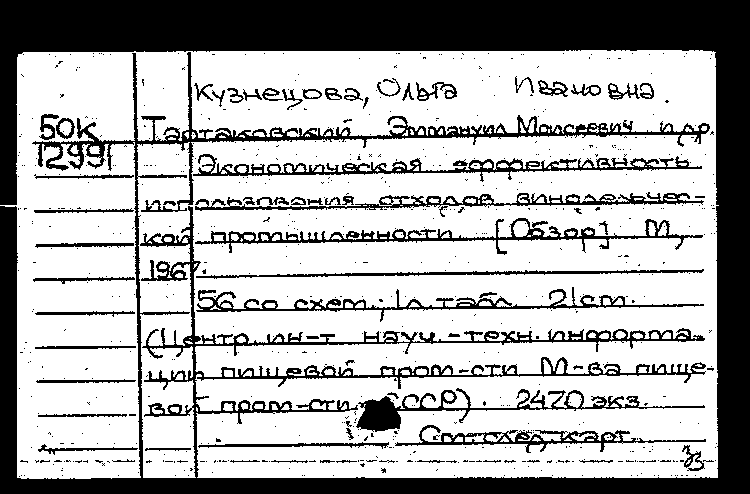 Кузнецова, Ольга Ивановна.
50к Тартаковский, Эммануил Моисеевич и др.
12991 Экономическая эффективность
использования отходов винодельчес-
кой промышленности. [Обзор]. М.,
1967.
56 со схем.; 1 л. табл. 21 cm.
(Центр. ин-т науч.-техн. информа-
ции пищевой пром-сти М-ва пище-
вой пром-сти СССР). 2470 экз.
См. след. карт.